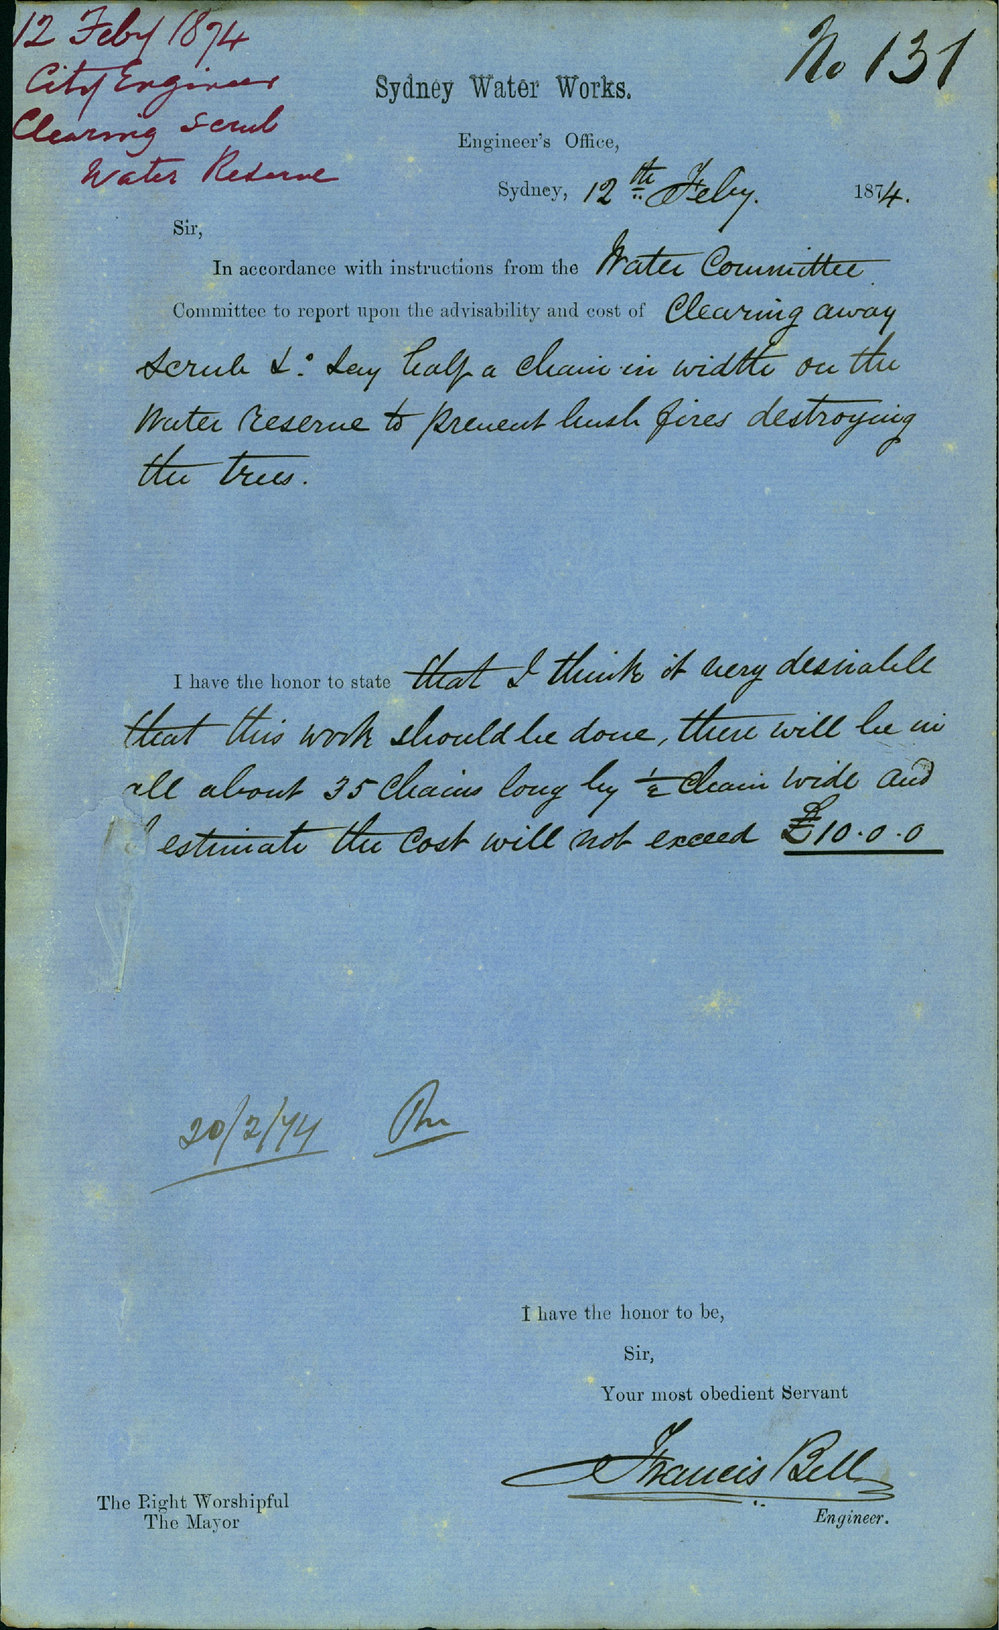 12 Feby 1874
City Engineer
Clearing scrub
Water Reserve
No 131
Sydney Water Works.
Engineer's Office,
Sydney, 12th Feby. 1874.
Sir,
In accordance with instructions from the Water Committee
Committee to report upon the advisability and cost of Clearing away
scrub &c. say half a chain in width on the
Water reserve to prevent bush fires destroying
the trees.
I have the honor to state that I think it very desirable
that this work should be done, there will be in
all about 35 chains long by ½ chain wide and
I estimate the cost will not exceed £10.0.0
20/2/74
I have the honor to be,
Sir,
Your most obedient Servant
Francis Bell
Engineer.
The Right Worshipful
The Mayor